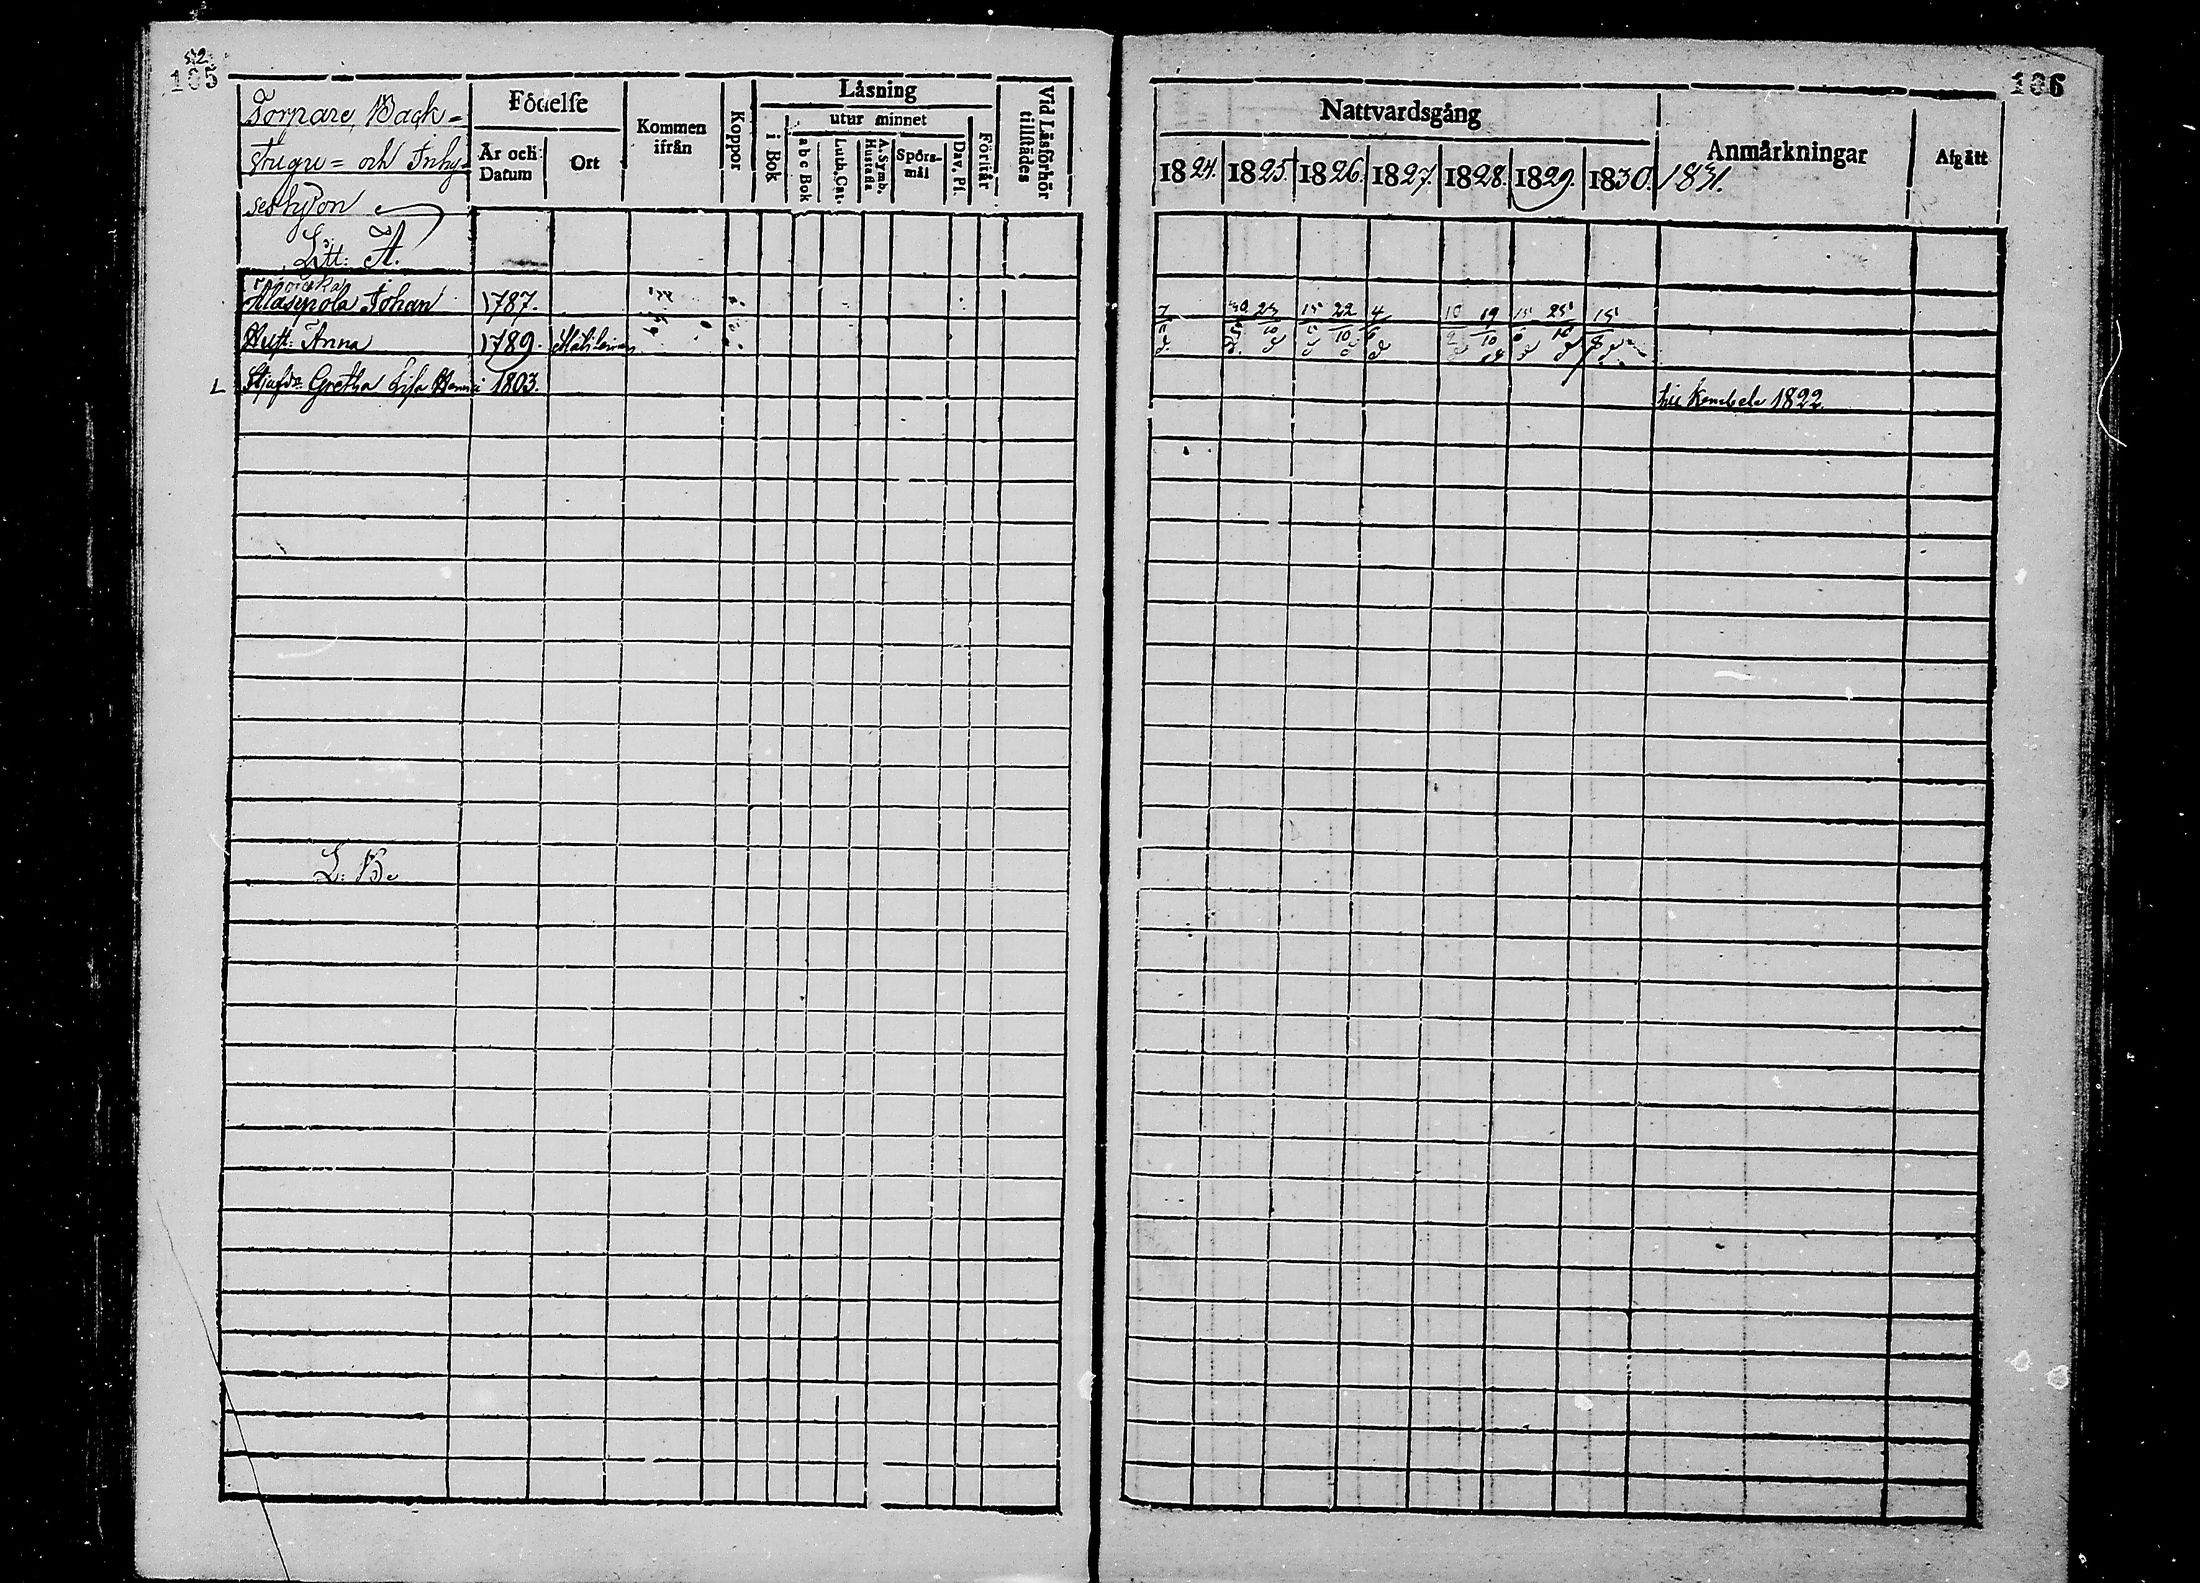 52
105
Torpare, Back=
stugu= och Inhy-
ses hjon
Litt: A.
Födelse
År och Datum
Ort
Kommen ifrån
Koppor
Läsning
utur minnet
i Bok
a b c Bok
Luth. Cat.
A. Symb. Hustafla
Spörs-mål
Dav. Pf.
Förstår
Vid Läsförhör tillstädes
Johan 1787.
Hust: Anna 1789.
L Stjufdr. Gretha Lisa 1803.
L: B.
106
Nattvardsgång
1824. 1825. 1826. 1827. 1828. 1829. 1830. 1831.
Anmärkningar
Afgått
7 30 23 15 22 4 10 19 15 25 15
5 5 10 5 10 6 2 10 6 10 8
1822.